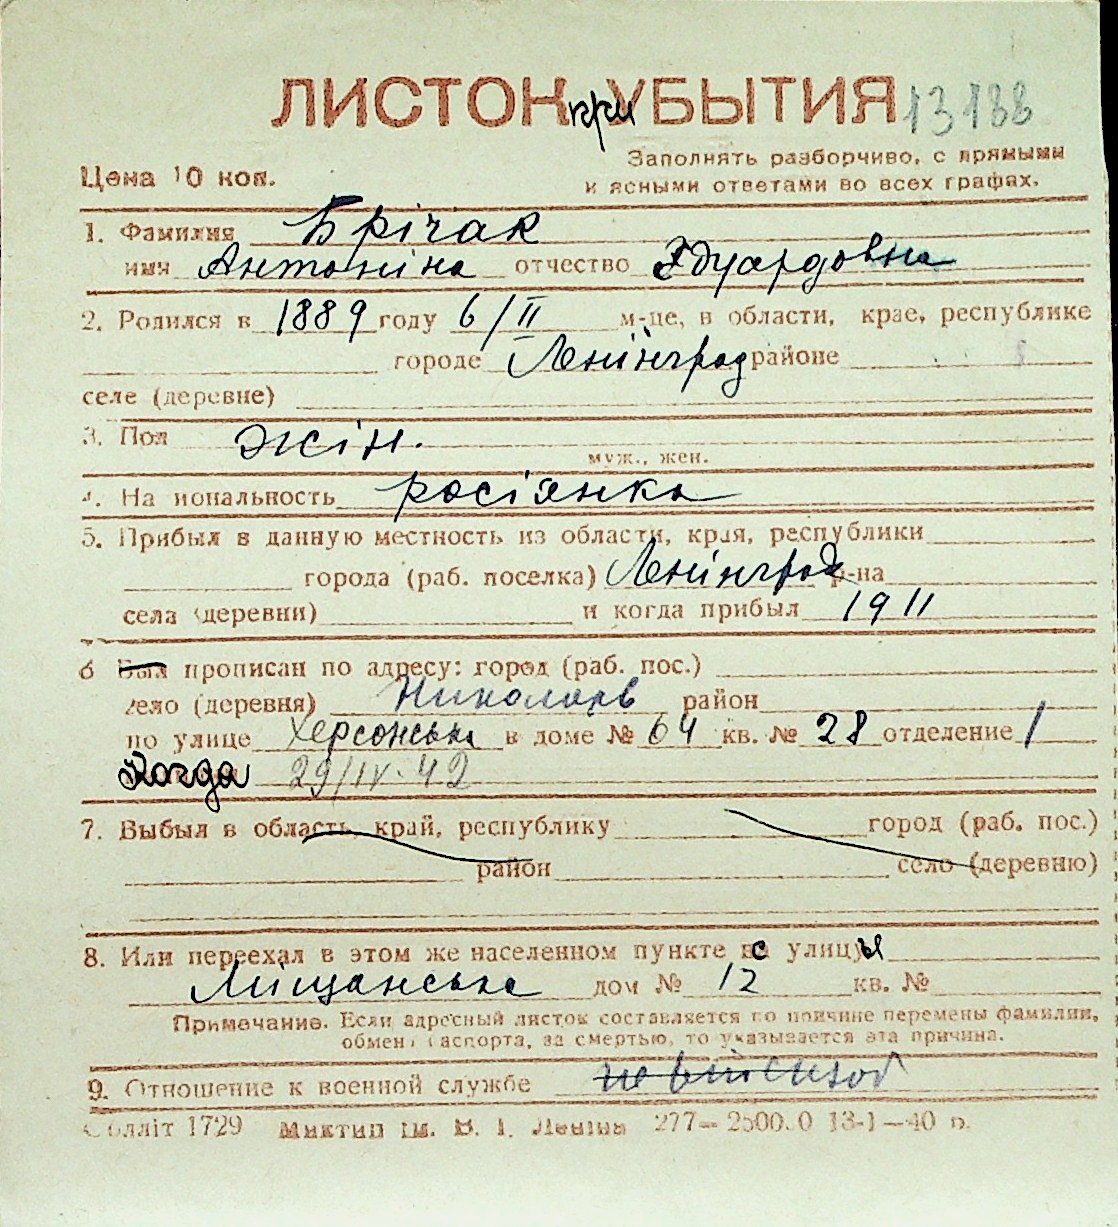 ЛИСТОК при УБЫТИЯ 13188
Заполнять разборчиво, с прямыми
Цена 10 коп. и ясными ответами во всех графах.
1. Фамилия Брічак
имя Антоніна отчество Эдуардовна
2. Родился в 1889 году 6/II м-це, в области, крае, республике
городе Ленінград районе
селе (деревне)
3. Пол жін.
муж., жен.
4. На иональность росіянка
5. Прибыл в данную местность из области, края, республики
города (раб. поселка) Ленінград р-на
села (деревни) и когда прибыл 1911
6 Был прописан по адресу: город (раб. пос.)
село (деревня) Николаев район
по улице Херсонська в доме № 64 кв. № 28 отделение 1
Когда 29/IV-42
7. Выбыл в область, край, республику город (раб. пос.)
район село (деревню)
8. Или переехал в этом же населенном пункте с улицы
Міщанська дом № 12 кв. №
Примечание. Если адресный листок составляется по причине перемены фамилии,
обмена паспорта, за смертью, то указывается эта причина.
9. Отношение к военной службе
Облліт 1729 Миктип ім. В. І. Леніна 277—2500.0 13-1—40 р.